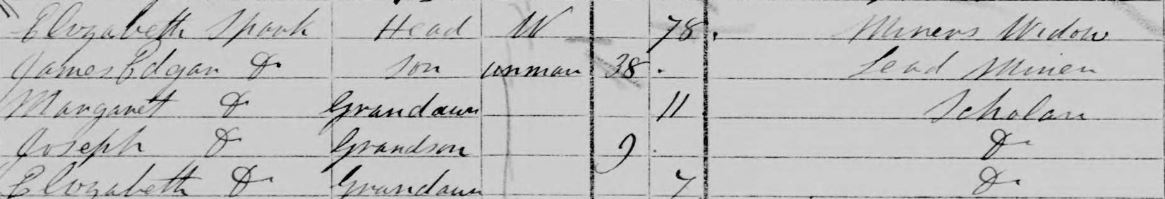 Elizabeth Spark Head W 78 Miners Widow
James Edgar Do Son unmar 38 Lead Miner
Margaret Do Grandaur 11 Scholar
Joseph Do Grandson 9 Do
Elizabeth Do Grandaur 7 Do